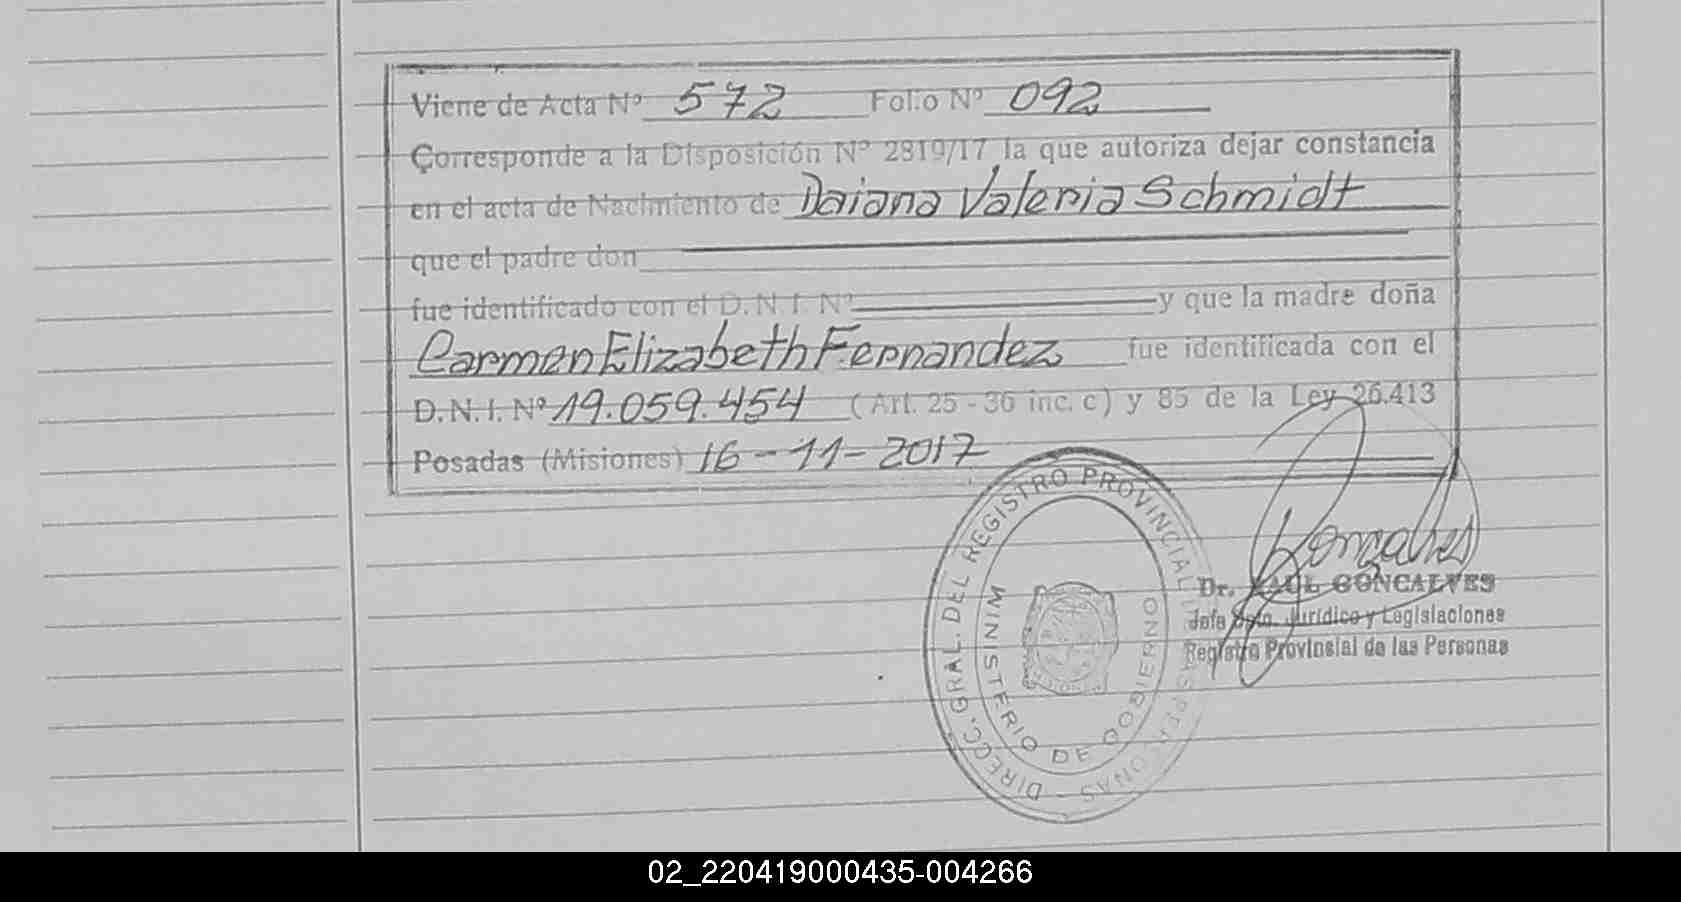 Viene de Acta Nº 572 Folio Nº 092
Corresponde a la Disposición Nº 2819/17 la que autoriza dejar constancia
en el acta de Nacimiento de Daiana Valeria Schmidt
que el padre don
fue identificado con el D.N.I. Nº y que la madre doña
Carmen Elizabeth Fernandez fue identificada con el
D.N.I. Nº 19.059.454 (Art. 25 - 36 inc. c) y 85 de la Ley 26.413
Posadas (Misiones) 16-11-2017
DIRECC. GRAL. DEL REGISTRO PROVINCIAL DE LAS PERSONAS -
MINISTERIO DE GOBIERNO
Goncalves
Dr. RAUL GONCALVES
Jefe Dpto. Jurídico y Legislaciones
Registro Provincial de las Personas
02_220419000435-004266